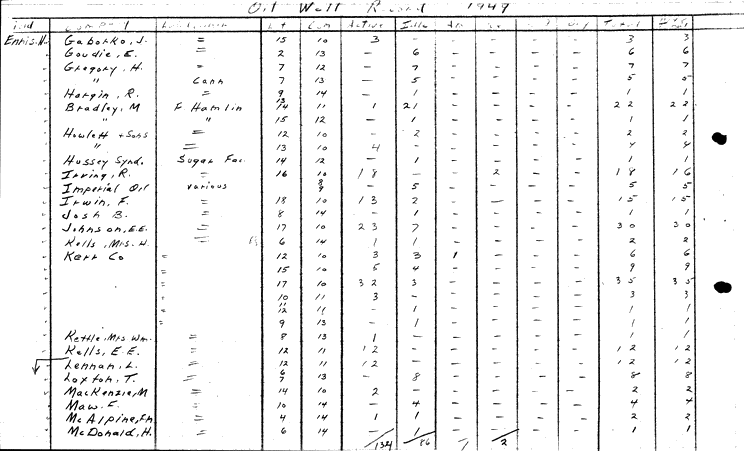 Oil Well Record 1949
Lot Con Active Idle Total
Ennis.N. Gaborko, J. = 15 10 3 - - - - - 3 3
Goudie, E. = 2 13 - 6 - - - - 6 6
Gregory, H. = 7 12 - 7 - - - - 7 7
" Cann 7 13 - 5 - - - - 5 5
Hargin, R. = 9 14 - 1 - - - - 1 1
Bradley, M F Hamlin 13 14 11 1 21 - - - - 22 22
" " 15 12 - 1 - - - - 1 1
Howlett + Sons = 12 10 - 2 - - - - 2 2
" = 13 10 4 - - - - - 4 4
Hussey Synd. Sugar Fac. 14 12 - 1 - - - - 1 1
Irving, R. = 16 10 18 - - 2 - - 18 16
Imperial Oil various 8 9 - 5 - - - - 5 5
Irwin, F. = 18 10 13 2 - - - - 15 15
Josh B. = 8 14 - 1 - - - - 1 1
Johnson, E.E. = 17 10 23 7 - - - - 30 30
Kells, Mrs. W. = 6 14 1 1 - - - - 2 2
Kerr Co = 12 10 3 3 1 - - - 6 6
= 15 10 5 4 - - - - 9 9
= 17 10 32 3 - - - - 35 35
= 10 11 3 - - - - - 3 3
= 11 12 11 - 1 - - - - 1 1
= 9 13 - 1 - - - - 1 1
Kettle, Mrs Wm. = 8 13 1 - - - - - 1 1
Kells, E.E. = 12 11 12 - - - - - 12 12
Lennan, L. = 12 11 12 - - - - - 12 12
Loxton, T. = 6 7 13 - 8 - - - - 8 8
MacKenzie, M = 14 10 2 - - - - - 2 2
Maw. F. = 10 14 - 4 - - - - 4 4
McAlpine, = 4 14 1 1 - - - - 2 2
McDonald, H. = 6 14 - 1 - - - - 1 1
134 86 1 2